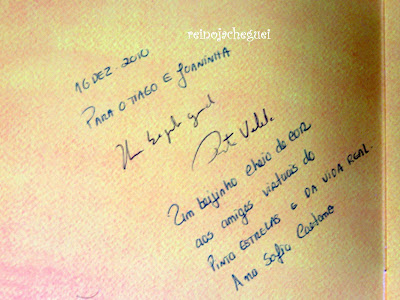 reinojacheguei
16 DEZ 2010
PARA O TIAGO E JOANINHA
Um
Um beijinho cheio de cor
aos amigos virtuais do
PINTO ESTRELAS E DA VIDA REAL.
Ana Sofia Caetano